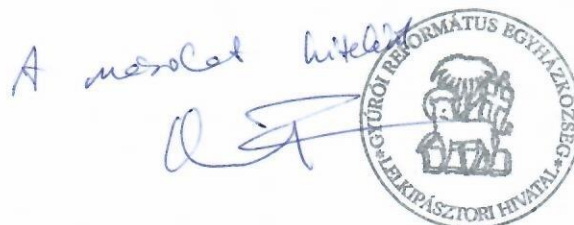 A másolat hiteléül
GYÚRÓI REFORMÁTUS EGYHÁZKÖZSEG
*LELKIPÁSZTORI HIVATAL*